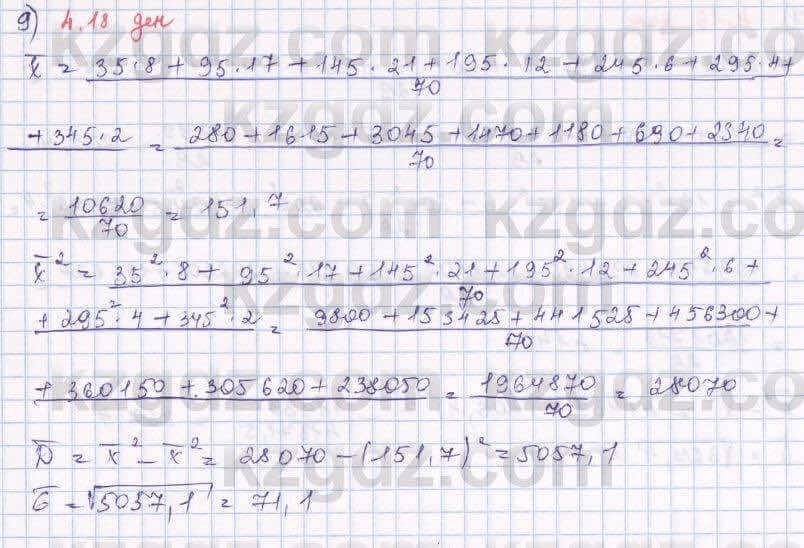 9) 4.18 ден
x̄ = (35·8 + 95·17 + 145·21 + 195·12 + 245·6 + 295·4 +)/70
(+ 345·2) = (280 + 1615 + 3045 + 1470 + 1180 + 690 + 2340)/70 =
= 10620/70 = 151,7
x̄² = (35²·8 + 95²·17 + 145²·21 + 195²·12 + 245²·6 +)/70
(+ 295²·4 + 345²·2) = (9800 + 153425 + 441525 + 456300 +)/70
(+ 360150 + 305620 + 238050) = 1964870/70 = 28070
D̄ = x̄² - x̄² = 28070 - (151,7)² = 5057,1
σ̄ = √5057,1 = 71,1
kzgdz.com